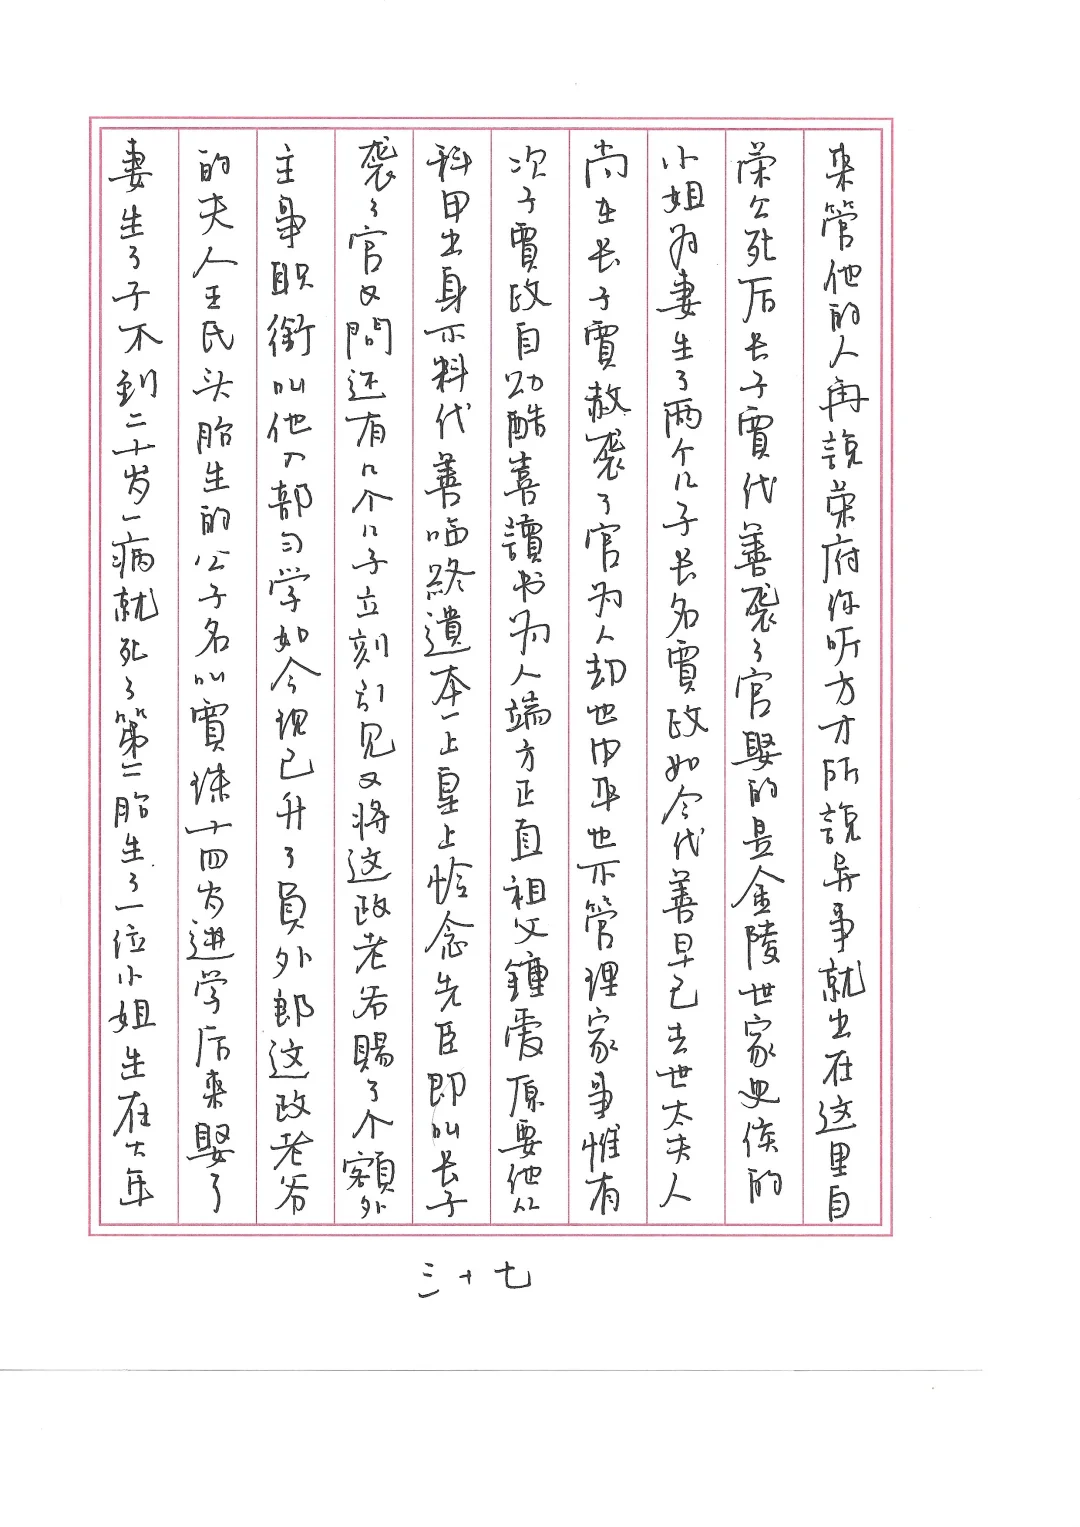 来管他的人再説荣府你听方才所説异事就出在这里自
荣公死后长子賈代善袭了官娶的是金陵世家史侯的
小姐为妻生了两个儿子长名賈政如今代善早已去世太夫人
尚在长子賈赦袭了官为人却也中平也不管理家事惟有
次子賈政自幼酷喜讀书为人端方正直祖父鍾爱原要他从
科甲出身不料代善临終遺本一上皇上恰念先臣即叫长子
袭了官又問还有几个儿子立刻引见又将这政老爷賜了个額外
主事职銜叫他入部习学如今现已升了員外郎这政老爷
的夫人王氏头胎生的公子名叫賈珠十四岁進学后来娶了
妻生了子不到二十岁一病就死了第二胎生了一位小姐生在大年
三十七